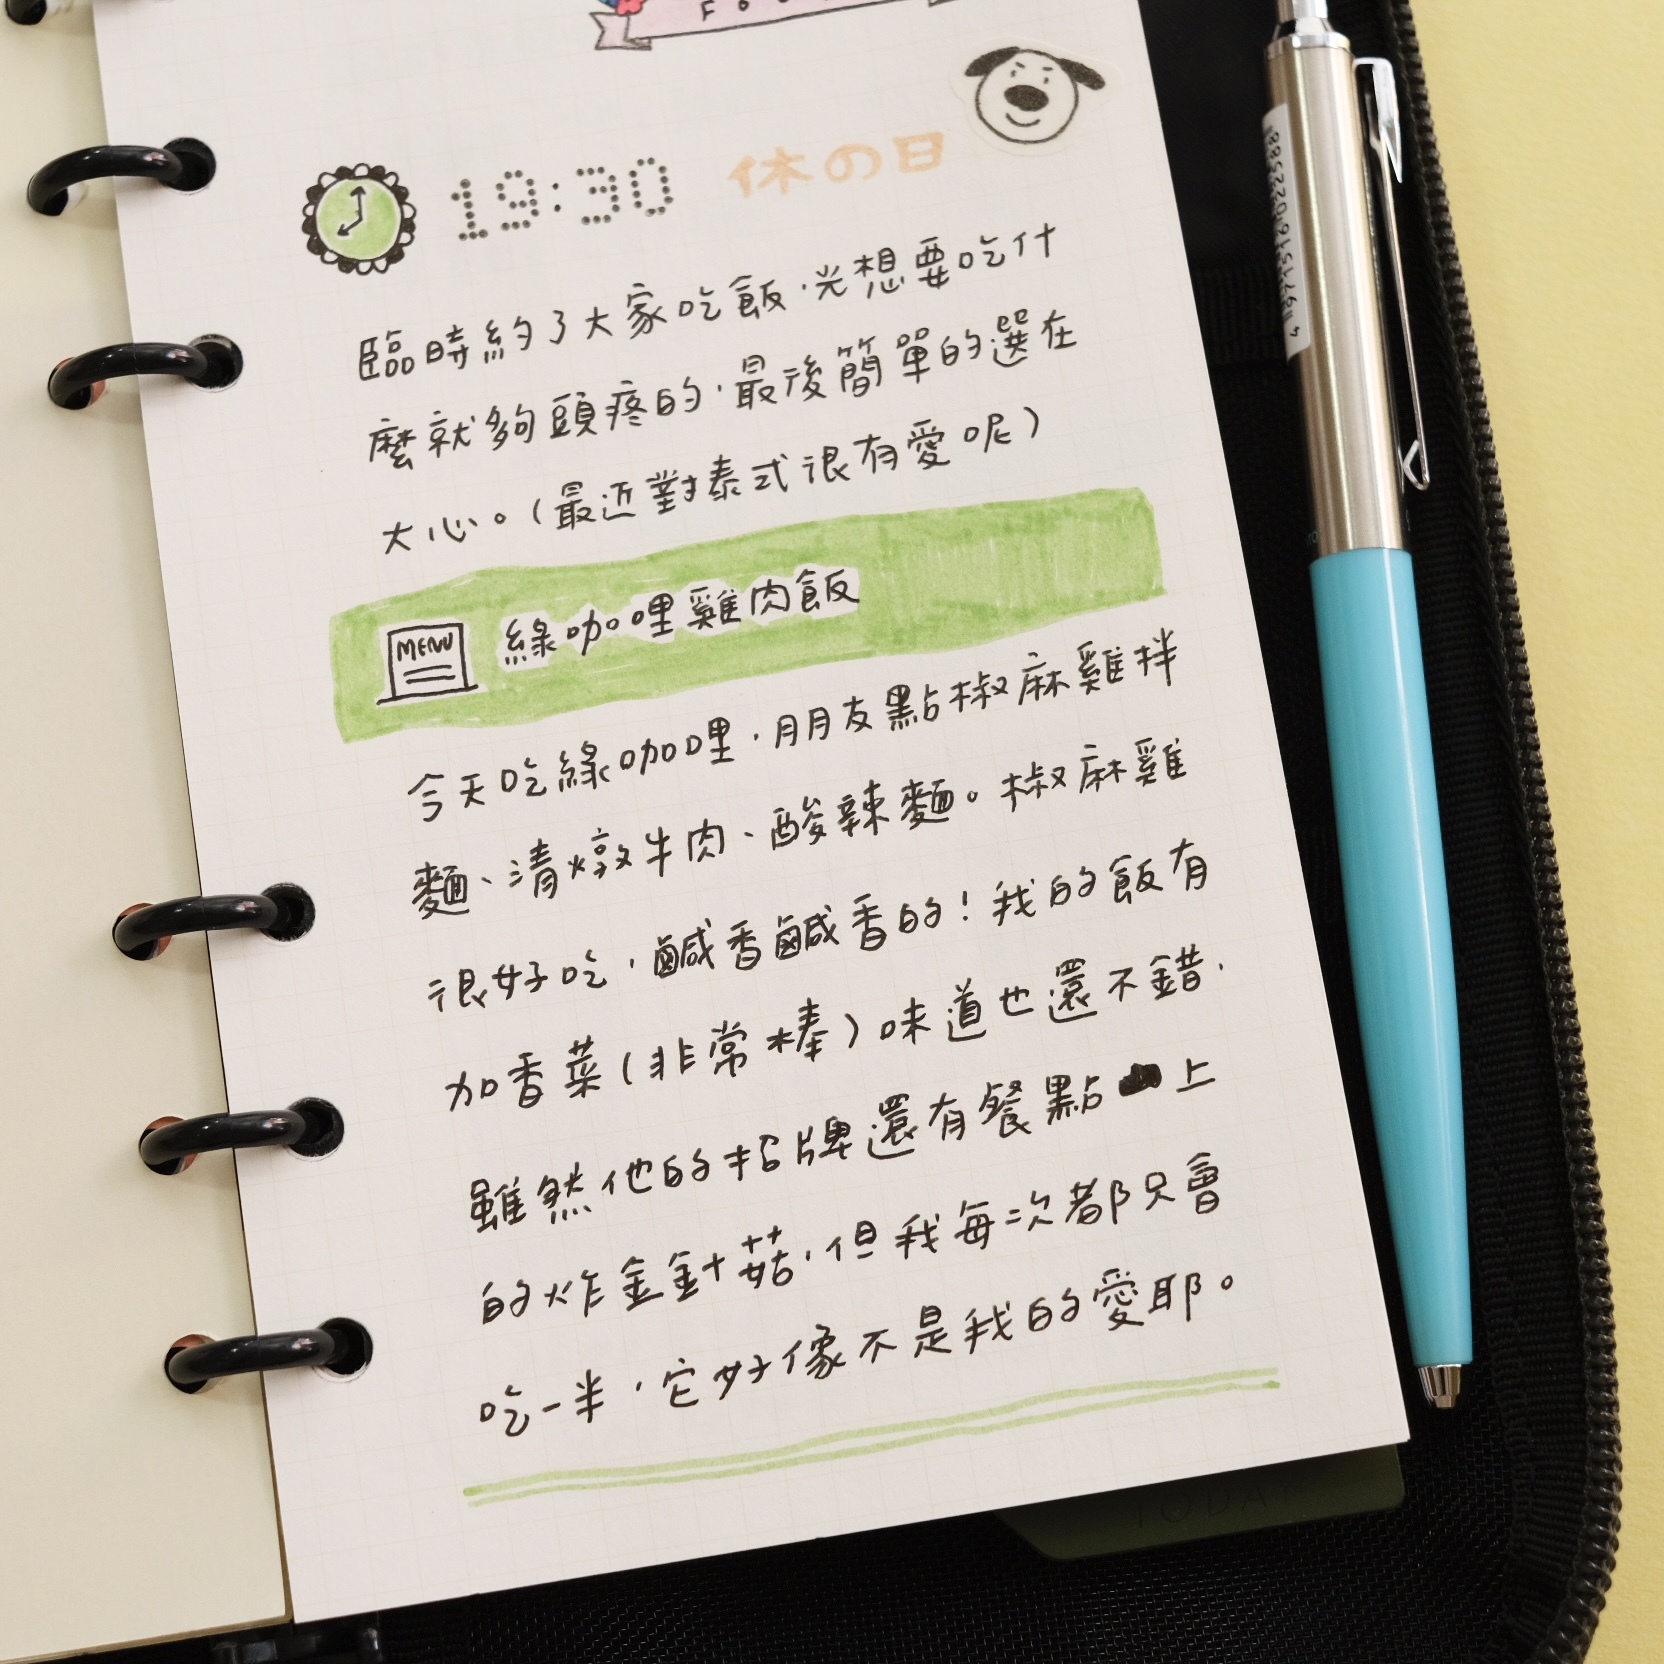 19:30 休の日
臨時約了大家吃飯，光想要吃什
麼就夠頭疼的，最後簡單的選在
大心。(最近對泰式很有愛呢)
MENU 綠咖哩雞肉飯
今天吃綠咖哩，朋友點椒麻雞拌
麵、清燉牛肉、酸辣麵。椒麻雞
很好吃，鹹香鹹香的！我的飯有
加香菜(非常棒)味道也還不錯，
雖然他的招牌還有餐點上
的炸金針菇，但我每次都只會
吃一半，它好像不是我的愛耶。
TODAY
4 971516 022588